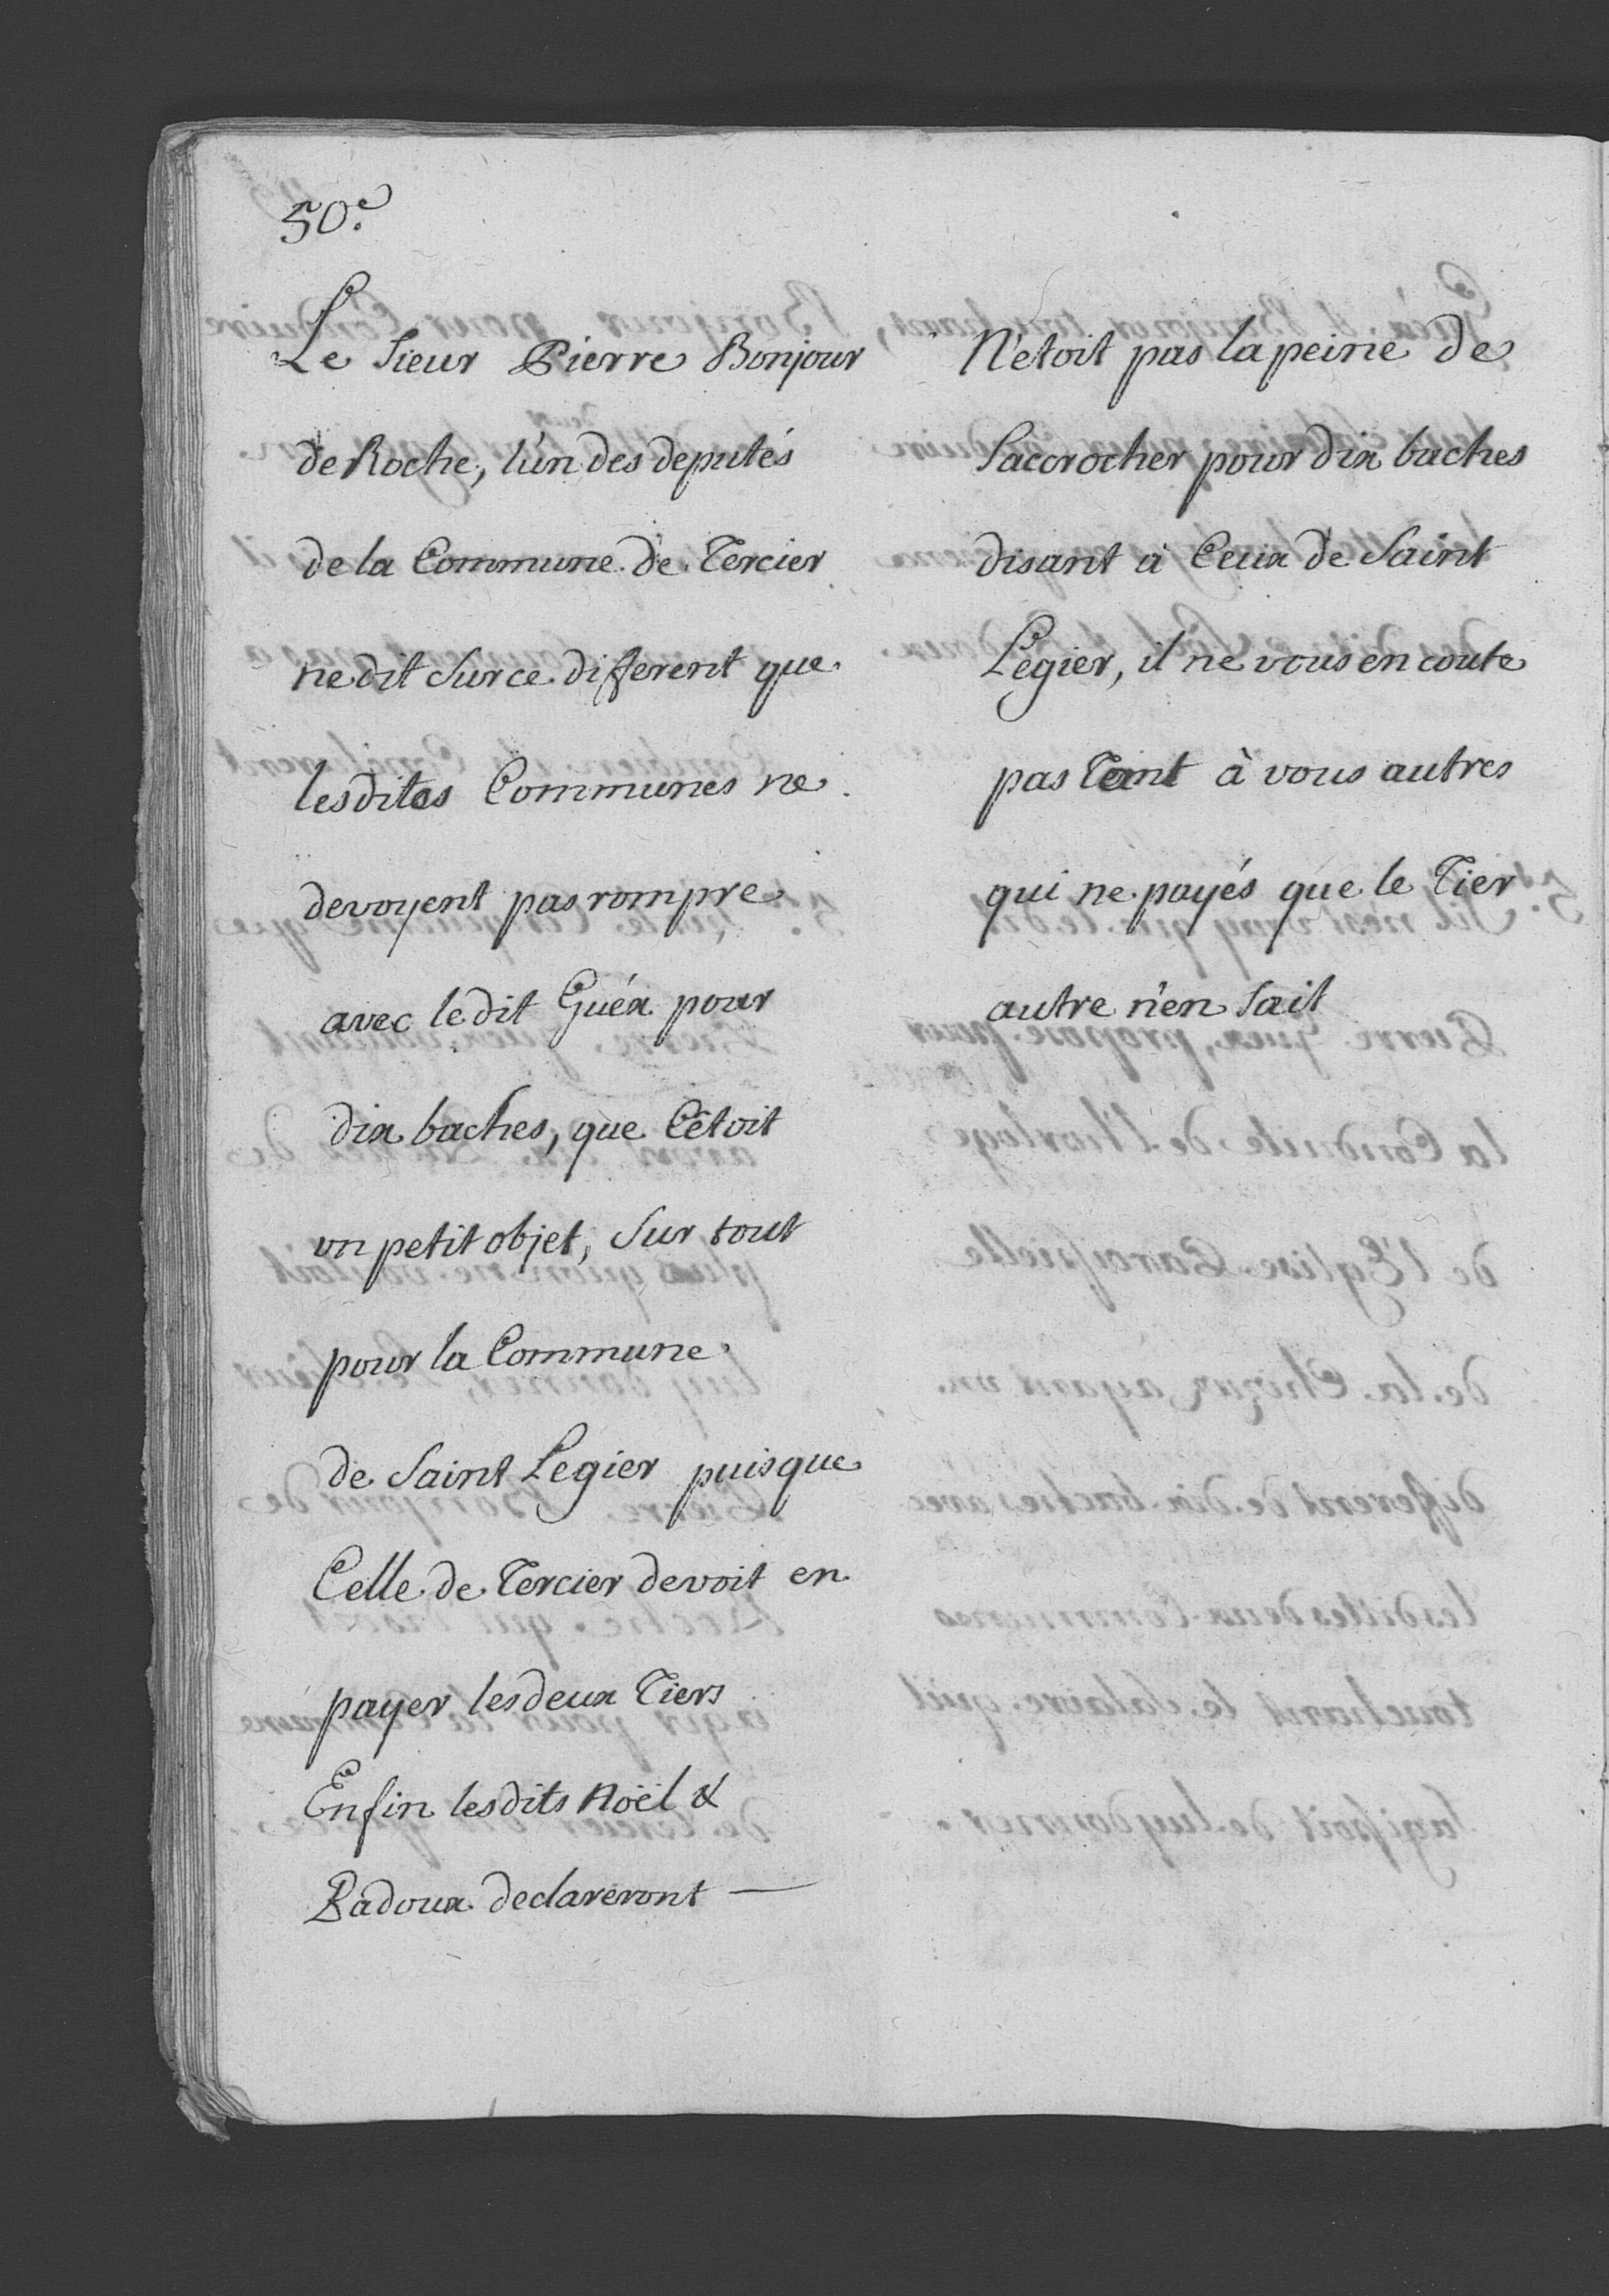 50.e
Le Sieur Pierre Bonjour
de Roche, l'un des deputés
de la Commune de Tercier
ne dit Sur ce different que
lesdites Communes ne
devoyent pas rompre
avec ledit Guéx pour
dix baches, que C'étoit
un petit objet, Sur tout
pour la Commune
de Saint Legier puisque
Celle de Tercier devoit en
payer les deux Tiers
Enfin lesdits Noël &
Badoux declareront —
N'étoit pas la peine de
Saccrocher pour dix baches
disant à Ceux de Saint
Légier, il ne vous en coute
pas Tant à vous autres
qui ne payés que le Tier
autre n'en Sait